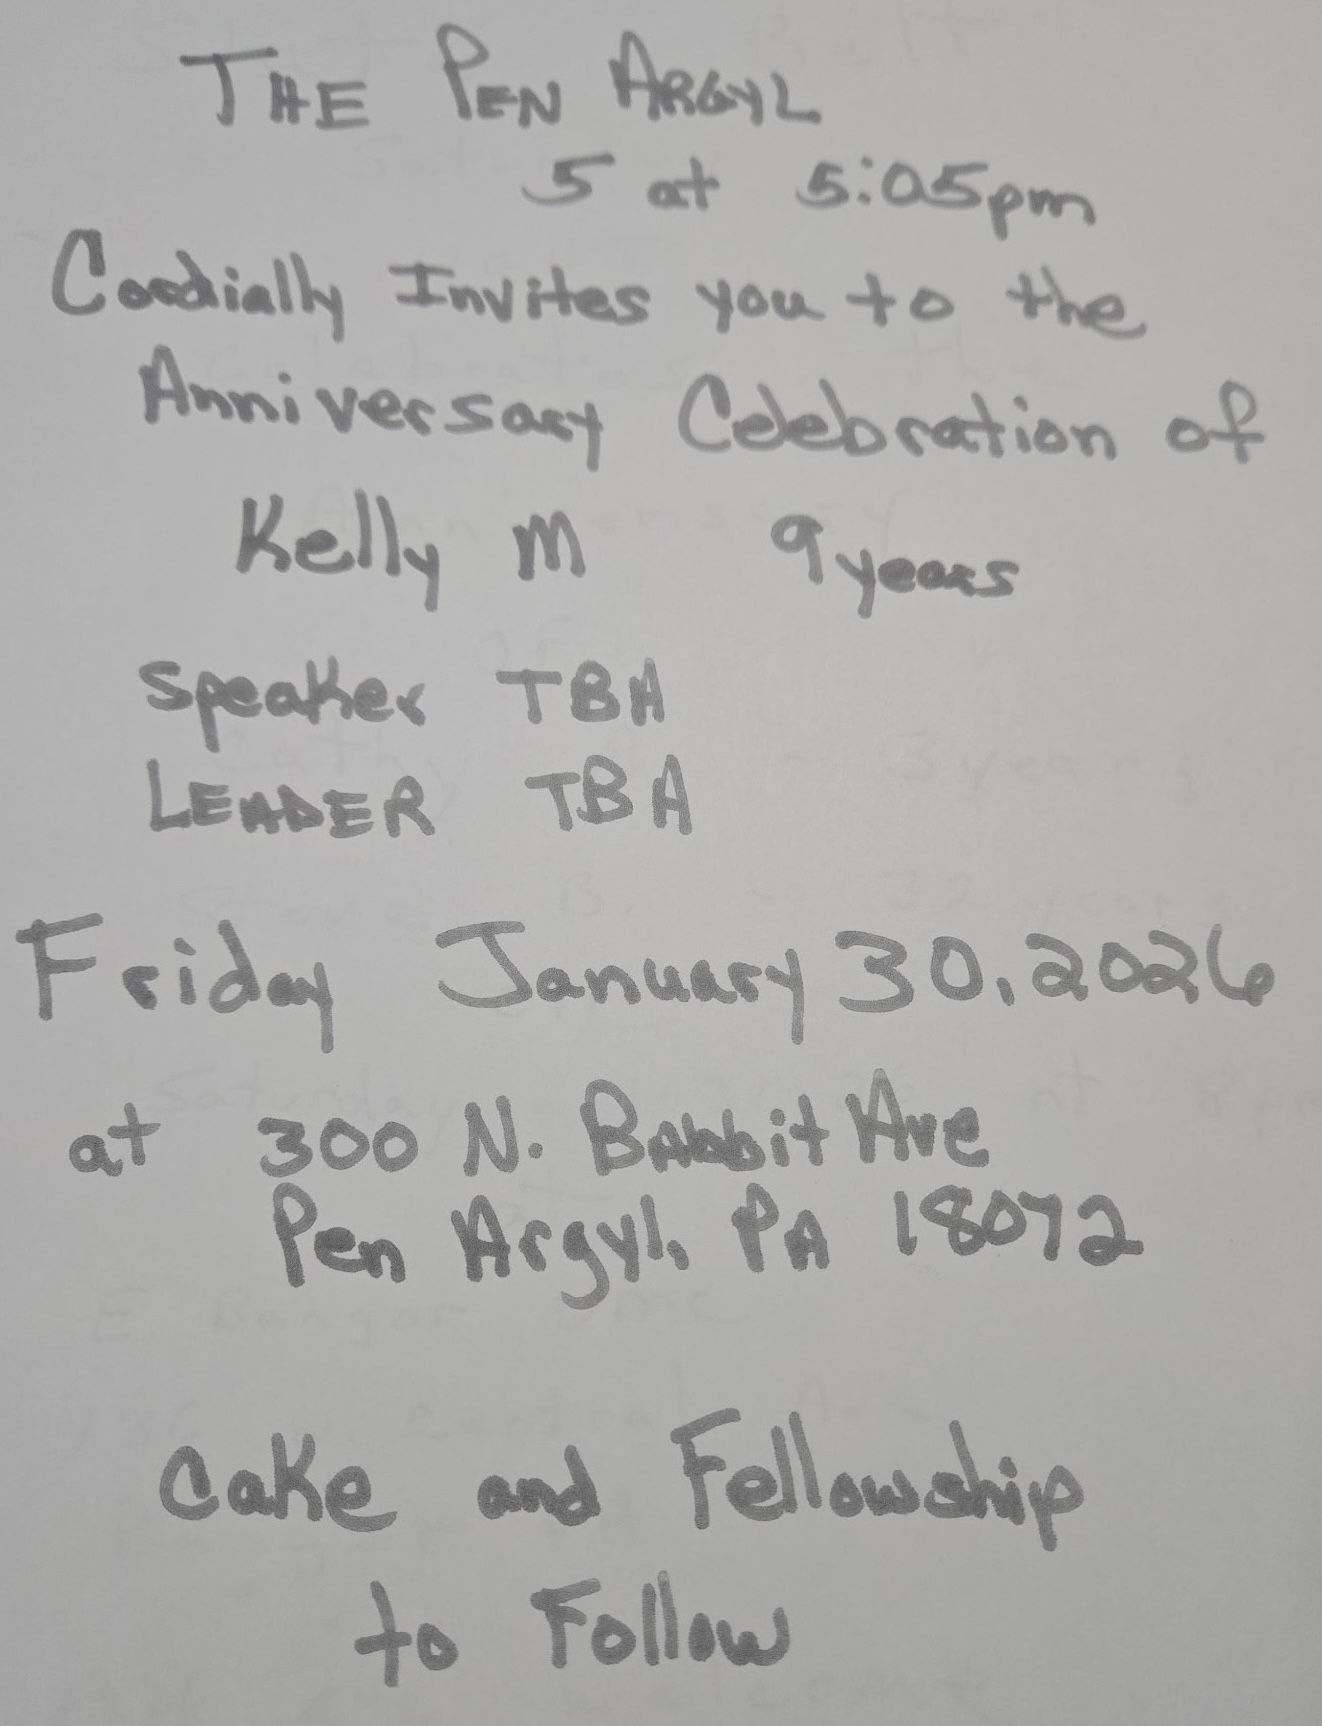 THE PEN ARGYL
5 at 5:05pm
Cordially Invites you to the
Anniversary Celebration of
Kelly M 9 years
Speaker TBA
LEADER TBA
Friday January 30, 2026
at 300 N. Babbit Ave
Pen Argyl, PA 18072
Cake and Fellowship
to Follow